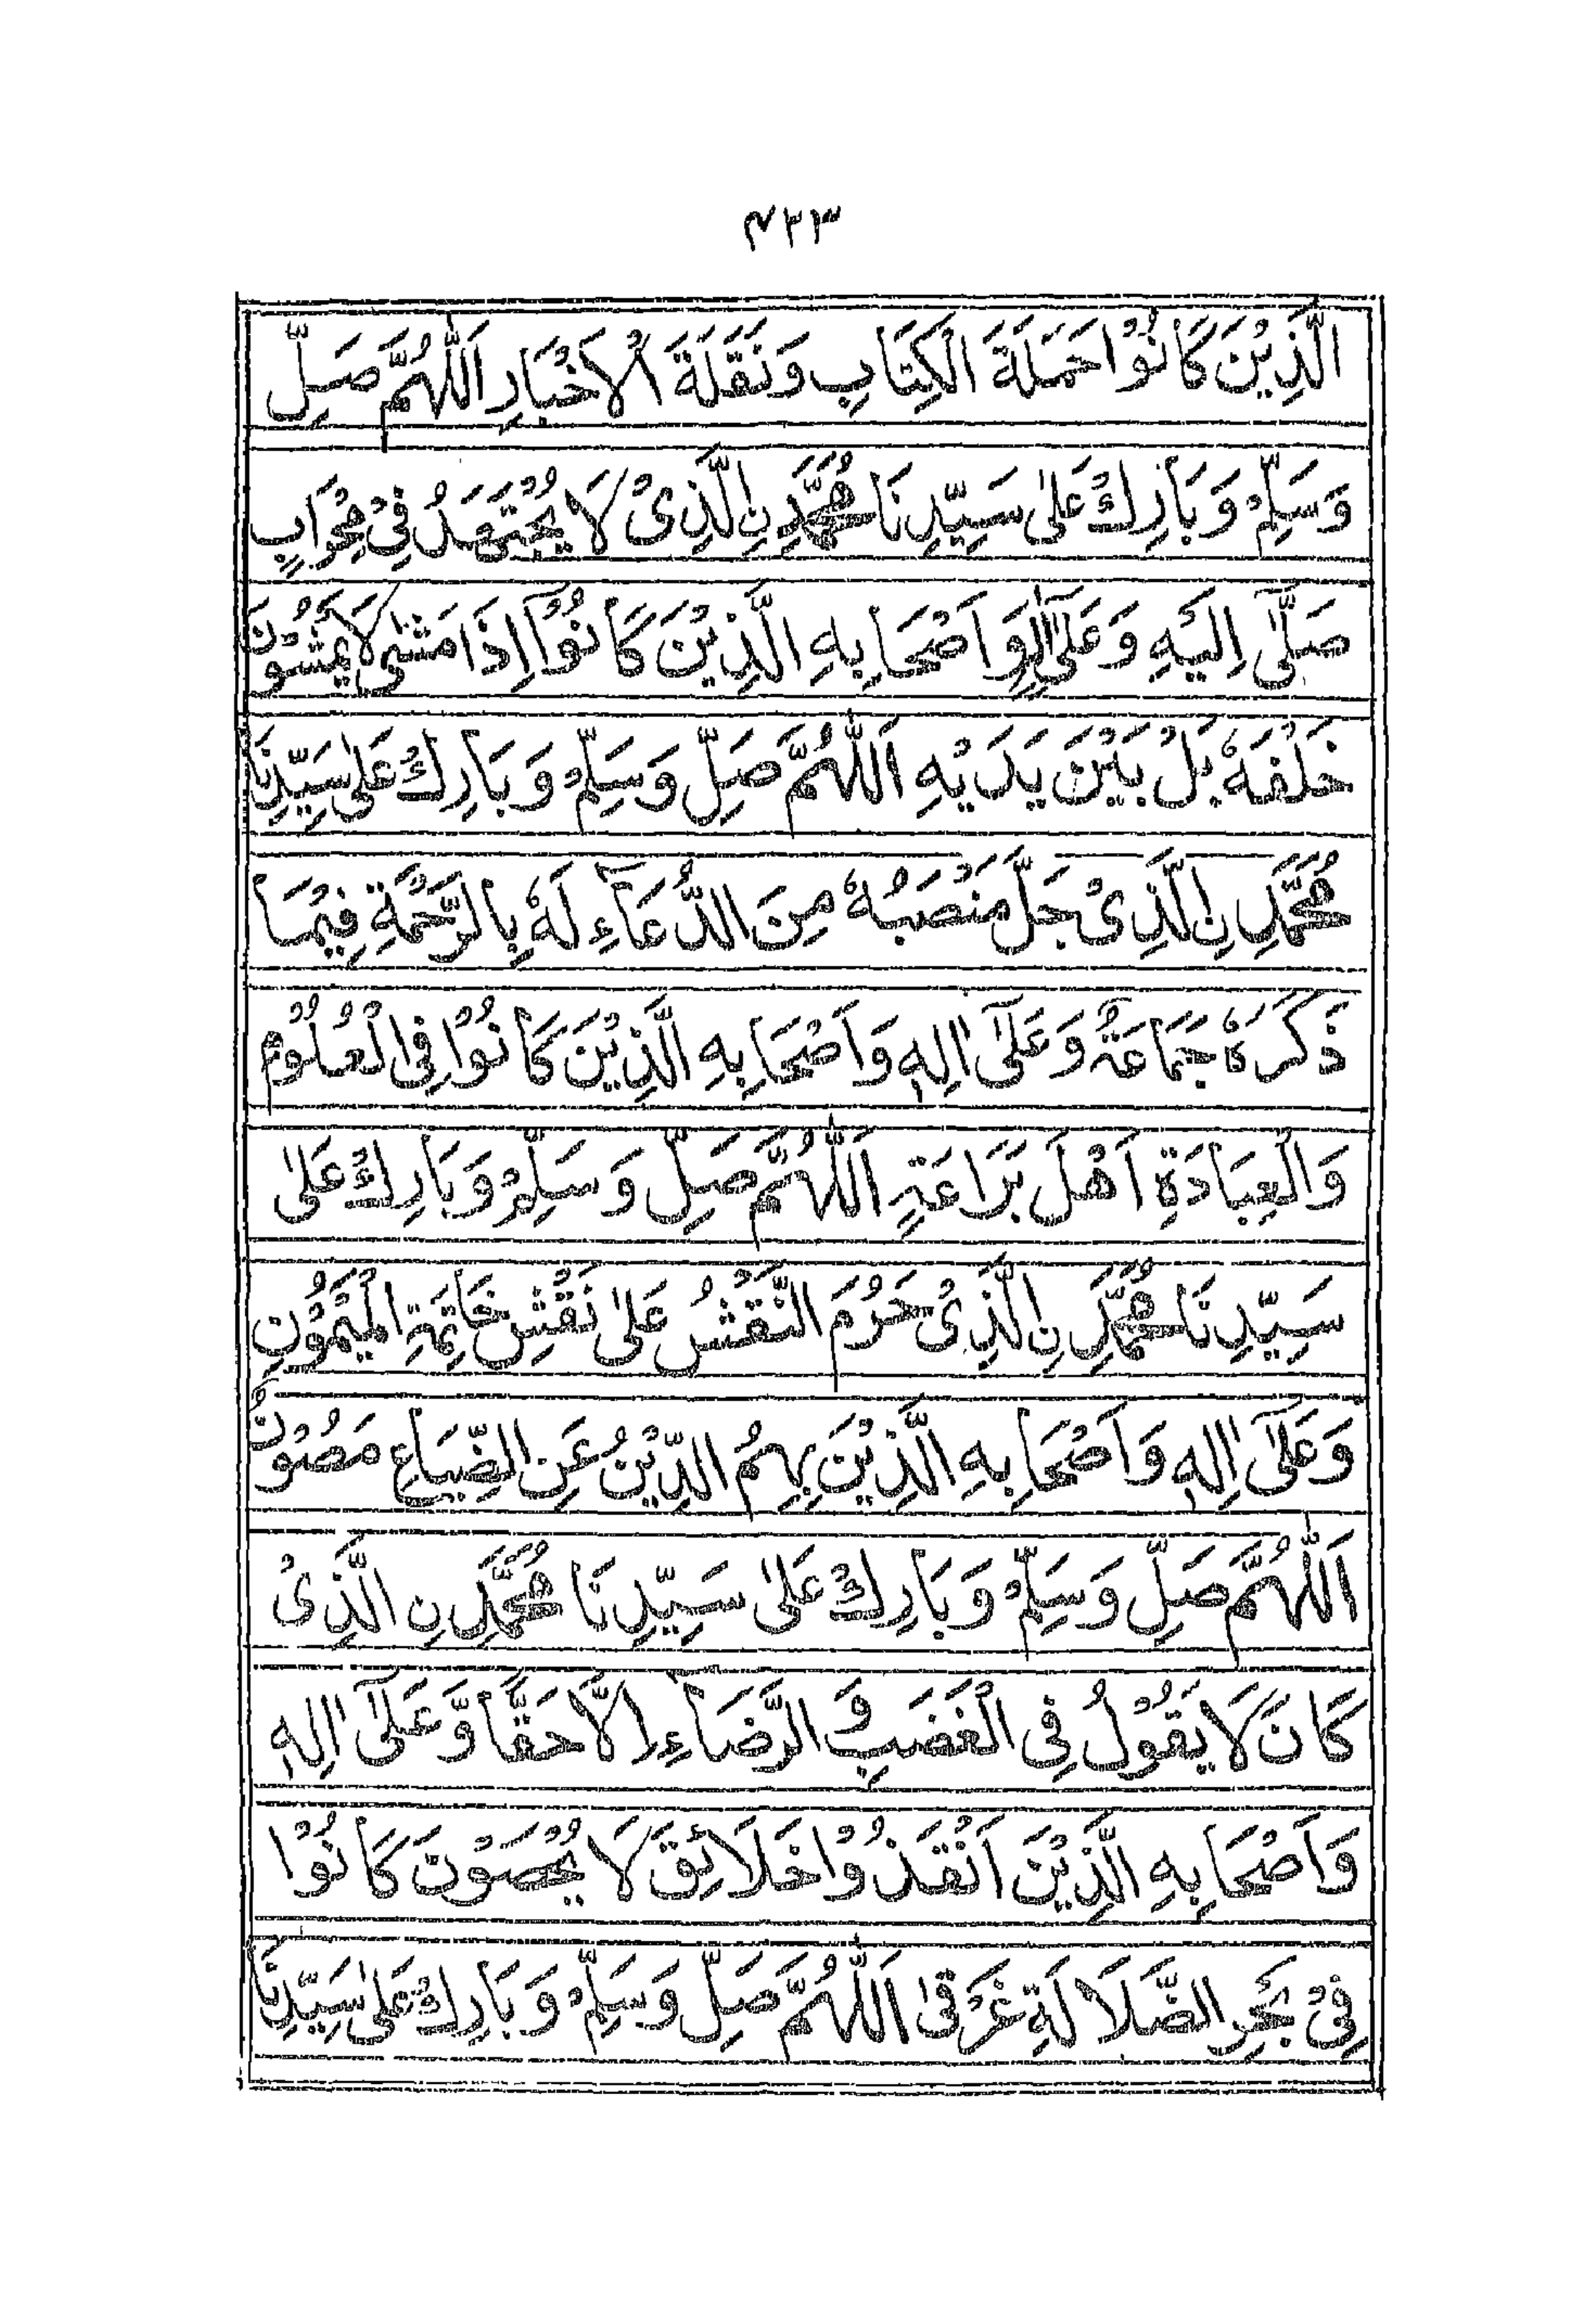 ۴۲۳
الَّذِيْنَ كَانُوْا حَمَلَةَ الْكِتَابِ وَنَقَلَةَ الْاَخْبَارِ اَللّٰهُمَّ صَلِّ
وَسَلِّمْ وَبَارِكْ عَلٰى سَيِّدِنَا مُحَمَّدِ نِ الَّذِىْ لَا يُجْتَهَدُ فِىْ مِحْرَابٍ
صَلّٰى اِلَيْهِ وَعَلٰٓى اٰلِهٖ وَاَصْحَابِهِ الَّذِيْنَ كَانُوْٓا اِذَا مَشٰى لَا يَمْشُوْنَ
خَلْفَهٗ بَلْ بَيْنَ يَدَيْهِ اَللّٰهُمَّ صَلِّ وَسَلِّمْ وَبَارِكْ عَلٰى سَيِّدِنَا
مُحَمَّدِ نِ الَّذِىْ جَلَّ مَنْصَبُهٗ مِنَ الدُّعَآءِ لَهٗ بِالرَّحْمَةِ فِيْمَا
ذَكَرَهٗ جَمَاعَةٌ وَعَلٰٓى اٰلِهٖ وَاَصْحَابِهِ الَّذِيْنَ كَانُوْا فِى الْعُلُوْمِ
وَالْعِبَادَةِ اَهْلَ بَرَاعَةٍ اَللّٰهُمَّ صَلِّ وَسَلِّمْ وَبَارِكْ عَلٰى
سَيِّدِنَا مُحَمَّدِ نِ الَّذِىْ حَرُمَ النَّقْشُ عَلٰى نَقْشِ خَاتِمَةِ الْمَيْمُوْنِ
وَعَلٰٓى اٰلِهٖ وَاَصْحَابِهِ الَّذِيْنَ بِهِمُ الدِّيْنُ عَنِ الضِّيَاعِ مَصُوْنٌ
اَللّٰهُمَّ صَلِّ وَسَلِّمْ وَبَارِكْ عَلٰى سَيِّدِنَا مُحَمَّدِ نِ الَّذِىْ
كَانَ لَا يَقُوْلُ فِى الْغَضَبِ وَ الرَّضَاءِ اِلَّا حَقًّا وَّعَلٰٓى اٰلِهٖ
وَاَصْحَابِهِ الَّذِيْنَ اَنْقَذُوْا خَلَائِقَ لَا يُحْصَوْنَ كَانُوْا
فِىْ بَحْرِ الضَّلَالَةِ غَرْقٰى اَللّٰهُمَّ صَلِّ وَسَلِّمْ وَبَارِكْ عَلٰى سَيِّدِنَا